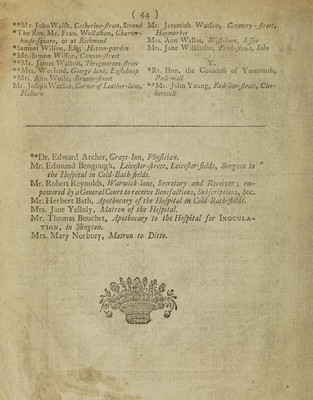 ( 44 )
**Mr. John Walsh, Catherine-street, Strand
*The Rev. Mr. Fran. Wollaston, Charter-
house-square, or at Richmond
*Samuel Wilson, Esq; Hatton-garden
*Mr. Simon Wilson, Cannon-street
**Mr. James Walton, Throgmorton-street
**Mrs. Worland, George-lane, Eastcheap
*Mrs. Ann Wolfe,
Mr. Joseph Watson, Corner of Leather-lane,
Holborn
Mr. Jeremiah Watson, Coventry-street,
Haymarket
Mrs. Ann Welles, Essex
Mrs. Jane Wilkinson, Frith-street, Soho
Y.
*Rt. Hon. the Countess of Yarmouth,
Pall-mall
**Mr. John Young, Red-lion-street, Cler-
kenwell
**Dr. Edward Archer, Grays-Inn, Physician.
Mr. Edmund Bengough, Leicester-street, Leicester-fields, Surgeon to
the Hospital in Cold-Bath-fields.
Mr. Robert Reynolds, Warwick-lane, Secretary and Receiver; em-
powered by a General Court to receive Benefactions, Subscriptions, &c.
Mr. Herbert Bath, Apothecary of the Hospital in Cold-Bath-fields.
Mrs. Jane Yelloly, Matron of the Hospital.
Mr. Thomas Bouchet, Apothecary to the Hospital for INOCULA-
TION, in Islington.
Mrs. Mary Norbury, Matron to Ditto.